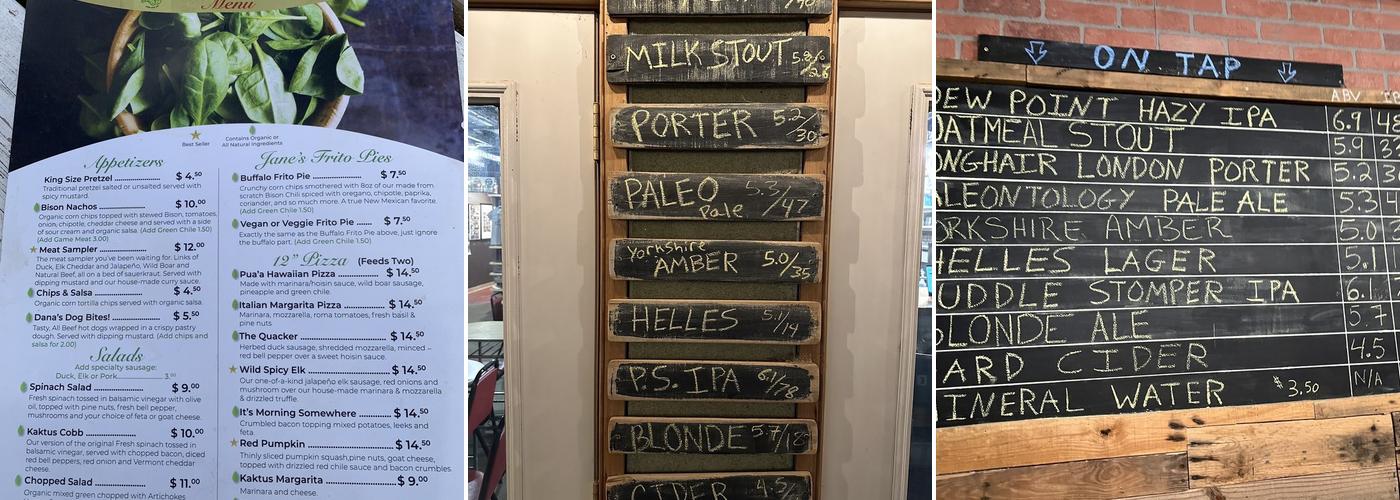 Menu
Best Seller
Contains Organic or
All Natural Ingredients
Appetizers
King Size Pretzel ........ $ 4.50
Traditional pretzel salted or unsalted served with
spicy mustard.
Bison Nachos ........ $ 10.00
Organic corn chips topped with stewed Bison, tomatoes,
onion, chipotle, cheddar cheese and served with a side
of sour cream and organic salsa. (Add Green Chile 1.50)
(Add Game Meat 3.00)
Meat Sampler ........ $ 12.00
The meat sampler you've been waiting for. Links of
Duck, Elk Cheddar and Jalapeño, Wild Boar and
Natural Beef, all on a bed of sauerkraut. Served with
dipping mustard and our house-made curry sauce.
Chips & Salsa ........ $ 4.50
Organic corn tortilla chips served with organic salsa.
Dana's Dog Bites! ........ $ 5.50
Tasty, All Beef hot dogs wrapped in a crispy pastry
dough. Served with dipping mustard. (Add chips and
salsa for 2.00)
Salads
Add specialty sausage:
Duck, Elk or Pork ........ 3.00
Spinach Salad ........ $ 9.00
Fresh spinach tossed in balsamic vinegar with olive
oil, topped with pine nuts, fresh bell pepper,
mushrooms and your choice of feta or goat cheese.
Kaktus Cobb ........ $ 10.00
Our version of the original Fresh spinach tossed in
balsamic vinegar, served with chopped bacon, diced
red bell peppers, red onion and Vermont cheddar
cheese.
Chopped Salad ........ $ 11.00
Organic mixed green chopped with Artichokes
Jane's Frito Pies
Buffalo Frito Pie ........ $ 7.50
Crunchy corn chips smothered with 8oz of our made from
scratch Bison Chili spiced with oregano, chipotle, paprika,
coriander, and so much more. A true New Mexican favorite.
(Add Green Chile 1.50)
Vegan or Veggie Frito Pie ........ $ 7.50
Exactly the same as the Buffalo Frito Pie above, just ignore
the buffalo part. (Add Green Chile 1.50)
12" Pizza (Feeds Two)
Pua'a Hawaiian Pizza ........ $ 14.50
Made with marinara/hoisin sauce, wild boar sausage,
pineapple and green chile.
Italian Margarita Pizza ........ $ 14.50
Marinara, mozzarella, roma tomatoes, fresh basil &
pine nuts
The Quacker ........ $ 14.50
Herbed duck sausage, shredded mozzarella, minced
red bell pepper over a sweet hoisin sauce.
Wild Spicy Elk ........ $ 14.50
Our one-of-a-kind jalapeño elk sausage, red onions and
mushroom over our house-made marinara & mozzarella
& drizzled truffle.
It's Morning Somewhere ........ $ 14.50
Crumbled bacon topping mixed potatoes, leeks and
feta.
Red Pumpkin ........ $ 14.50
Thinly sliced pumpkin squash, pine nuts, goat cheese,
topped with drizzled red chile sauce and bacon crumbles.
Kaktus Margarita ........ $ 9.00
Marinara and cheese.
MILK STOUT
PORTER 5.2/30
PALEO Pale 5.3/47
Yorkshire
AMBER 5.0/35
HELLES 5.1/19
P.S. IPA 6.1/78
BLONDE 5.7/18
CIDER 4.5/
ON TAP
ABV
EW POINT HAZY IPA 6.9 48
OATMEAL STOUT 5.9 33
ONGHAIR LONDON PORTER 5.2
LEONTOLOGY PALE ALE 5.3
ORKSHIRE AMBER 5.0
HELLES LAGER 5.1
UDDLE STOMPER IPA 6.1
BLONDE ALE 5.7
ARD CIDER 4.5
INERAL WATER $3.50 N/A